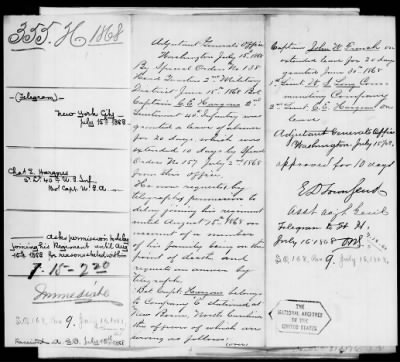 355. H 1868
(Telegram)
New York City
July 15th 1868.
Chas E. Hargous
2" Lt 40th U.S. Inf.
Bvt Capt. U.S.A.
Asks permission to delay
joining his Regiment until Aug
15th 1868 for reasons stated within
7-15-7 20
Immediate
S.O. 168. Par 9. July 16, 1868.
Received A.G.O. July 15th 1868
Adjutant General's Office
Washington July 15, 1868
By Special Orders No 138
Head Quarters 2nd Military
District June 15, 1868 Bvt
Captain C.E. Hargous 2d
Lieutenant 40th Infantry was
granted a leave of absence
for 20 days which was
extended 10 days by Special
Orders No 157 July 2nd 1868
from this Office.
He now requests by
telegraph, permission to
delay joining his regiment
until August 15th 1868 on
account of a member
of his family being on the
point of death and
requests an answer by
Telegraph.
Bvt Capt. Hargous belongs
to Company E stationed at
New Berne, North Carolina
the officers of which are
serving as follows:
(over)
Captain John W. French on
extended leave for 30 days
granted June 30th 1868
1st Lieut.
2" Lieut C.E. Hargous on
leave
Adjutant General's Office
Washington July 15/68.
approved for 10 days
E.D. Townsend
Asst Adjt Genl
Telegram to Lt H,
July 16th 1868
S.O. 168. Par 9. July 16, 1868.
THE
NATIONAL ARCHIVES
OF THE
UNITED STATES